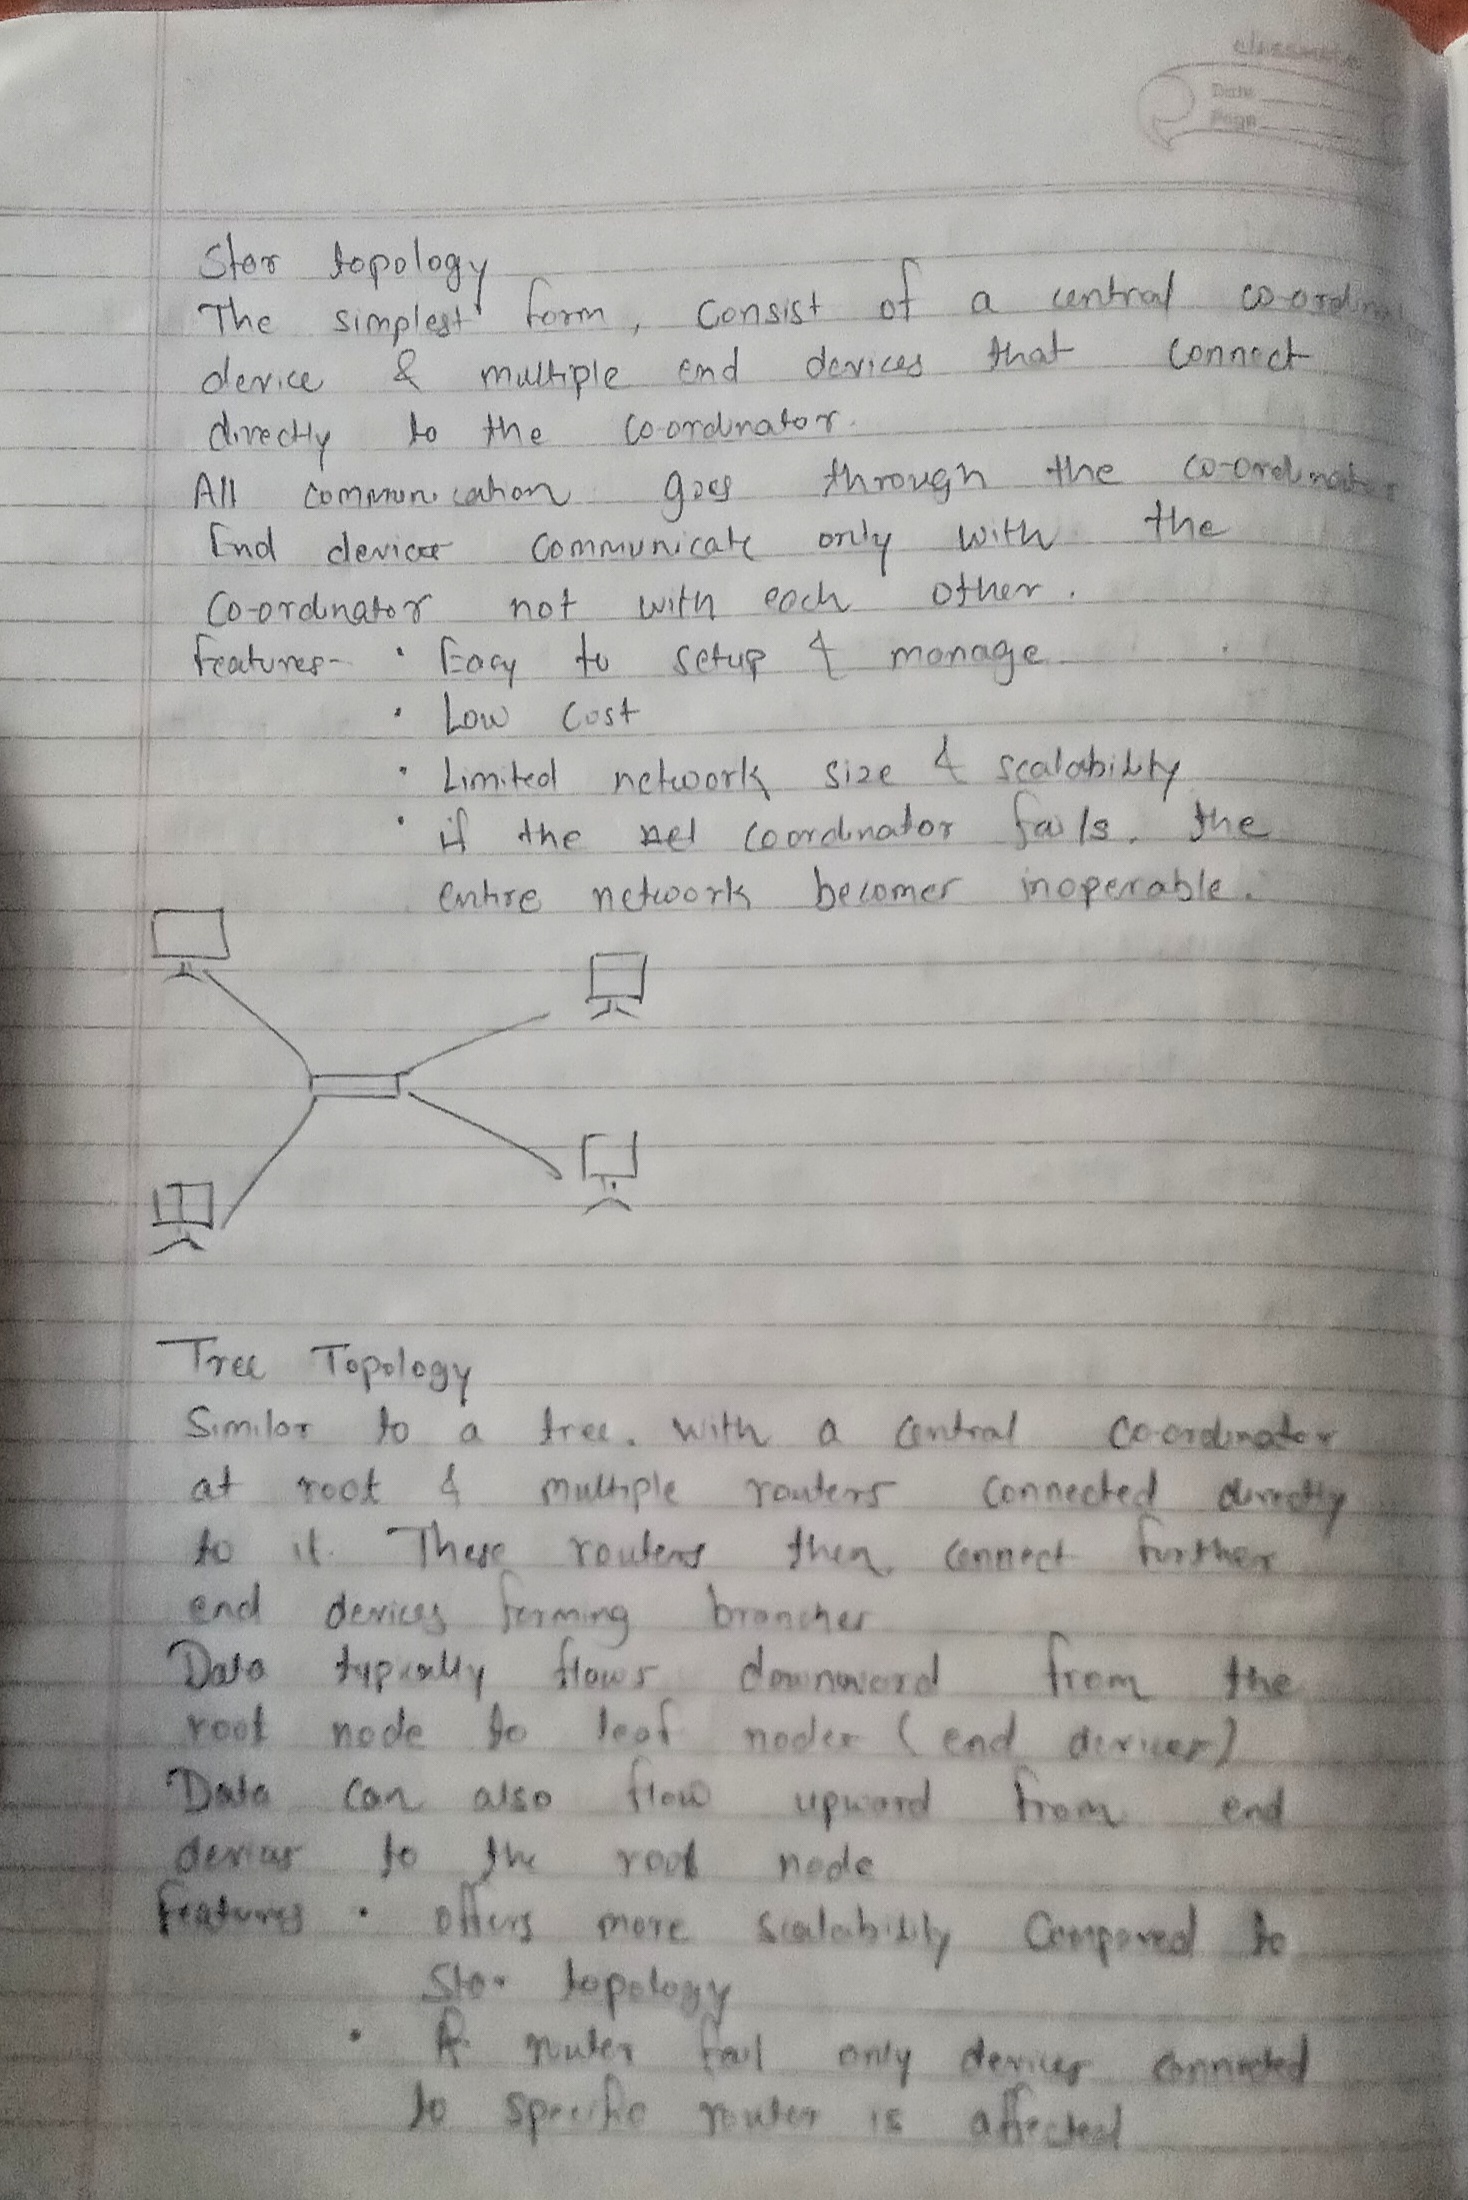 classmate
Date
Page
Star topology
The simplest form, consist of a central co-ordinator
device & multiple end devices that connect
directly to the co-ordinator.
All communication goes through the co-ordinator
End devices communicate only with the
co-ordinator not with each other.
features- • Easy to setup & manage
• Low cost
• Limited network size & scalability
• if the coordinator fails, the
entire network becomes inoperable.
Tree Topology
Similar to a tree. with a central co-ordinator
at root & multiple routers connected directly
to it. These routers then connect further
end devices forming branches
Data typically flows downward from the
root node to leaf nodes (end devices)
Data can also flow upward from end
devices to the root node
features • offers more scalability compared to
star topology
• If router fail only devices connected
to specific router is affected